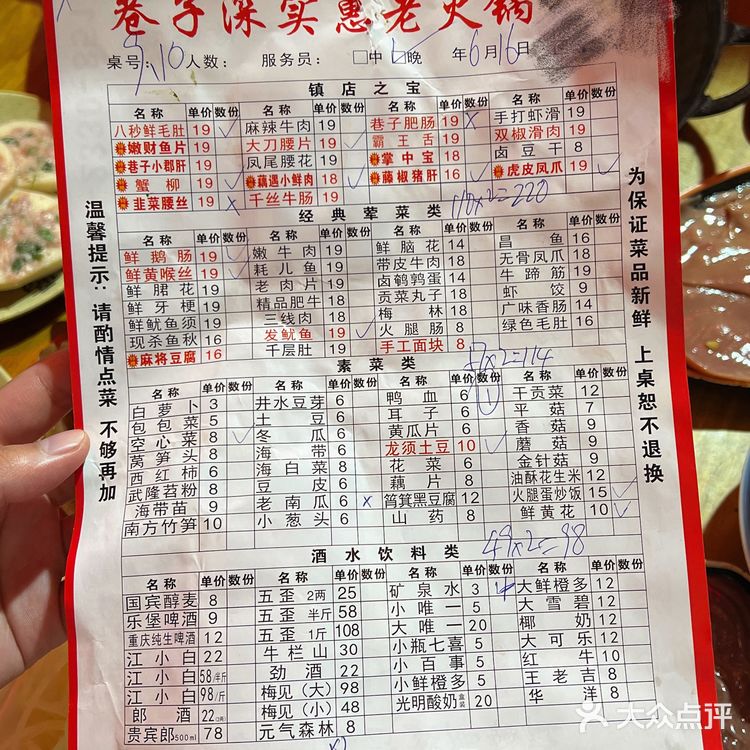 巷子深实惠老火锅
桌号: 9,10 人数: 服务员: □中 □晚 年6月16日
镇店之宝
名称 单价 数份 名称 单价 数份 名称 单价 数份 名称 单价 数份
八秒鲜毛肚 19 ✓ 麻辣牛肉 19 巷子肥肠 19 x 手打虾滑 19
嫩财鱼片 19 大刀腰片 19 ✓ 霸王舌 19 双椒滑肉 19
巷子小郡肝 19 凤尾腰花 19 掌中宝 18 卤豆干 8
蟹柳 19 ✓ 藕遇小鲜肉 18 ✓ 藤椒猪肝 16 ✓ 虎皮凤爪 19 ✓
韭菜腰丝 19 x 千丝牛肠 19
110x2=220
经典荤菜类
名称 单价 数份 名称 单价 数份 名称 单价 数份 名称 单价 数份
鲜鹅肠 19 ✓ 嫩牛肉 19 鲜脑花 14 昌鱼 16
鲜黄喉丝 19 ✓ 耗儿鱼 19 带皮牛肉 18 无骨凤爪 18
鲜䐃花 19 老肉片 19 卤鹌鹑蛋 14 牛蹄筋 19
鲜牙梗 19 精品肥牛 18 贡菜丸子 18 虾饺 9
鲜鱿鱼须 19 三线肉 18 梅林 18 广味香肠 14
现杀鱼秋 16 发鱿鱼 19 ✓ 火腿肠 8 绿色毛肚 16
麻将豆腐 16 千层肚 19 手工面块 8
57x2=114
素菜类
名称 单价 数份 名称 单价 数份 名称 单价 数份 名称 单价 数份
白萝卜 3 井水豆芽 6 鸭血 6 1 干贡菜 12
包包菜 5 土豆 6 耳子 6 平菇 7
空心菜 8 ✓ 冬瓜 6 黄瓜片 6 香菇 9
莴笋头 8 海带 6 龙须土豆 10 ✓ 蘑菇 9
西红柿 6 海白菜 8 花菜 6 金针菇 9
武隆苕粉 8 豆皮 6 藕片 8 油酥花生米 12
海带苗 9 老南瓜 6 x 筲箕黑豆腐 12 火腿蛋炒饭 15 ✓
南方竹笋 10 小葱头 6 山药 8 鲜黄花 10 ✓
49x2=98
酒水饮料类
名称 单价 数份 名称 单价 数份 名称 单价 数份 名称 单价 数份
国宾醇麦 8 五歪 2两 25 矿泉水 3 4 大鲜橙多 12
乐堡啤酒 9 五歪 半斤 58 小唯一 5 大雪碧 12
重庆纯生啤酒 12 五歪 1斤 108 大唯一 20 椰奶 12
江小白 22 牛栏山 30 小瓶七喜 5 大可乐 12
江小白 58/半斤 劲酒 22 小百事 5 红牛 10
江小白 98/斤 梅见(大) 98 小鲜橙多 5 王老吉 8
郎酒 22(2两) 梅见(小) 48 光明酸奶 盒装 20 华洋 8
贵宾郎500ml 78 元气森林 8
温馨提示：请酌情点菜 不够再加
为保证菜品新鲜 上桌恕不退换
大众点评